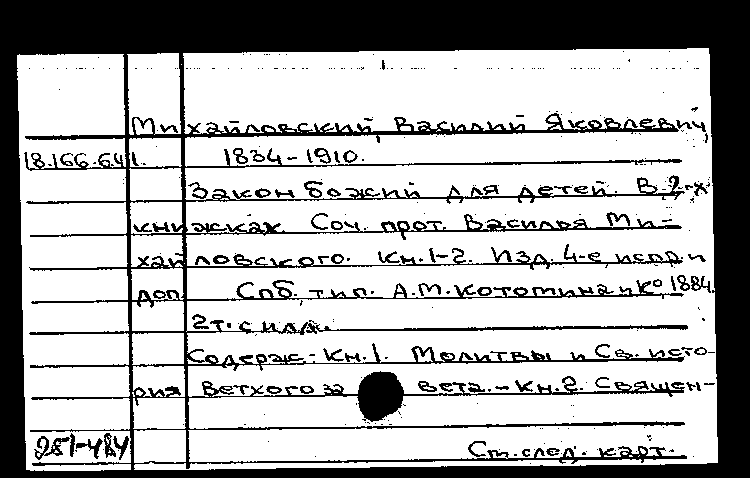 Михайловский, Василий Яковлевич,
18.166.6.41. 1834-1910.
Закон божий для детей. В 2-х
книжках. Соч. прот. Василья Ми-
хайловского. Кн.1-2. Изд. 4-е, испр. и
доп. Спб, тип. А.М. Котомина и Ко, 1884.
2 т. с илл.
Содерж.: Кн.1. Молитвы и Св. исто-
рия Ветхого завета. - Кн.2. Священ-
251-484 См. след. карт.